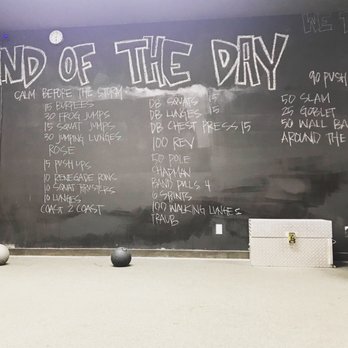 ND OF THE DAY
CALM BEFORE THE STORM
15 BURPEES
30 FROG JUMPS
15 SQUAT JUMPS
30 JUMPING LUNGES
ROSE
15 PUSH UPS
10 RENEGADE ROWS
10 SQUAT THRUSTERS
10 LUNGES
COAST 2 COAST
DB SQUATS 15
DB LUNGES 15
DB CHEST PRESS 15
100 REV
50 POLE
CHAPMAN
BAND PULLS 4
6 SPRINTS
100 WALKING LUNGES
TRAUB
90 PUSH
50 SLAM
25 GOBLET
50 WALL BA
AROUND THE